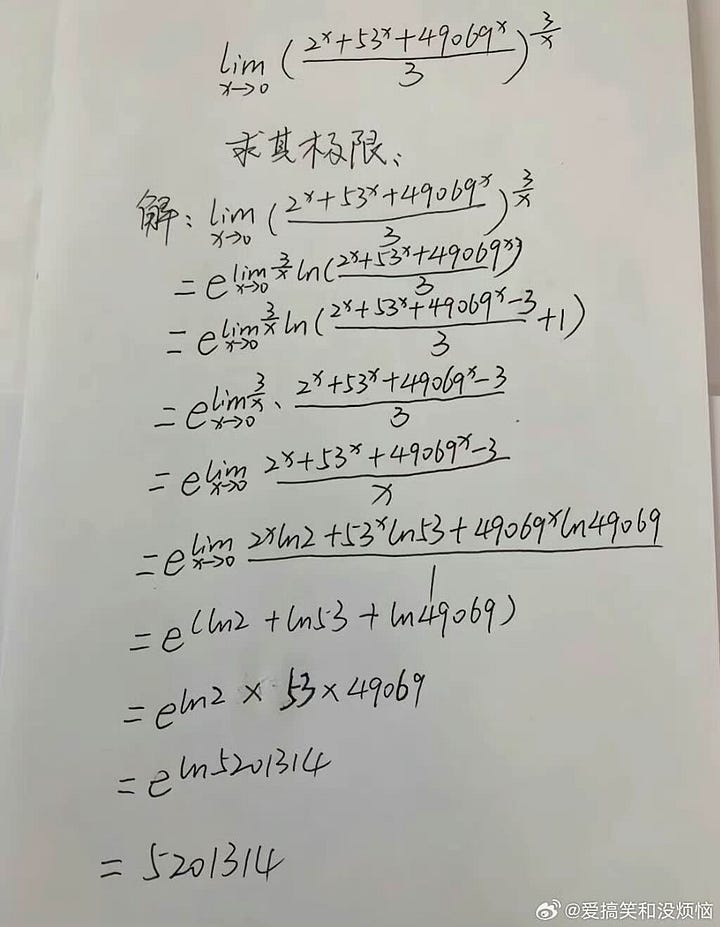 lim x→0 (2ˣ+53ˣ+49069ˣ / 3)^(3/x)
求其极限、
解: lim x→0 (2ˣ+53ˣ+49069ˣ / 3)^(3/x)
= e^(lim x→0 3/x ln(2ˣ+53ˣ+49069ˣ / 3))
= e^(lim x→0 3/x ln(2ˣ+53ˣ+49069ˣ-3 / 3 +1))
= e^(lim x→0 3/x · 2ˣ+53ˣ+49069ˣ-3 / 3)
= e^(lim x→0 2ˣ+53ˣ+49069ˣ-3 / x)
= e^(lim x→0 2ˣln2+53ˣln53+49069ˣln49069 / 1)
= e^(ln2+ln53+ln49069)
= e^(ln2×53×49069)
= e^(ln5201314)
= 5201314
@爱搞笑和没烦恼